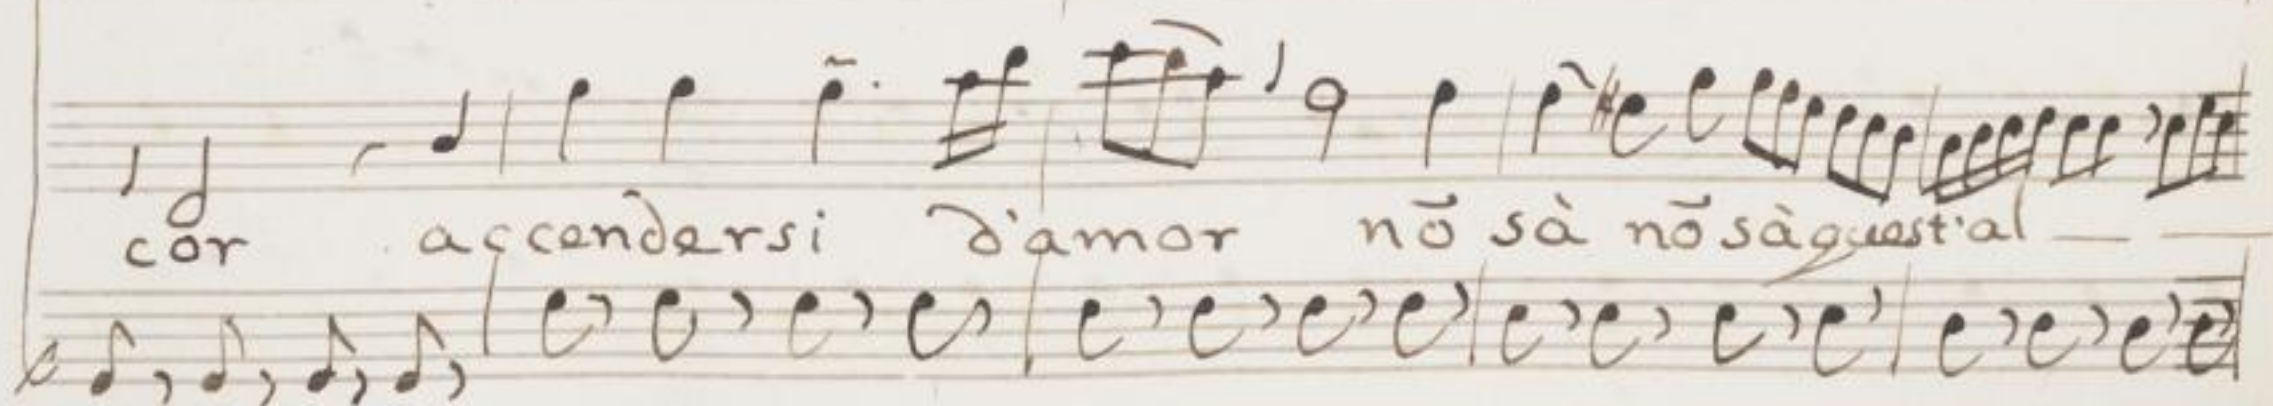 cor accendersi d'amor nō sà nō sà quest'al